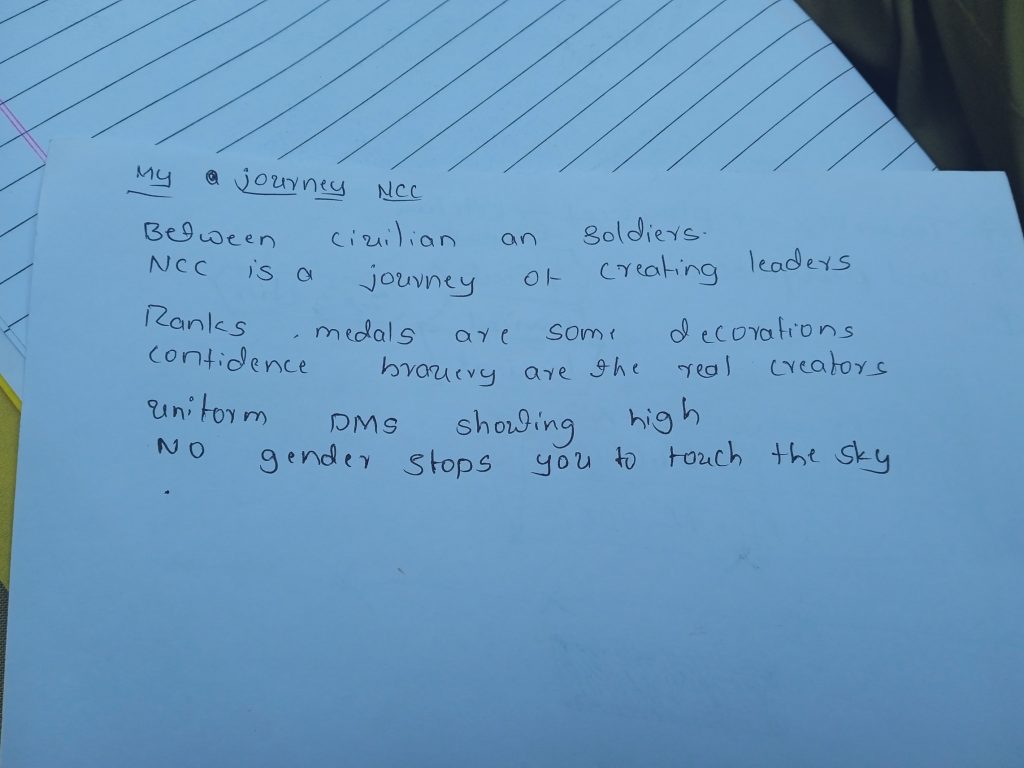 My a journey NCC
Between civilian an soldiers.
NCC is a journey of creating leaders
Ranks, medals are some decorations
confidence bravery are the real creators
uniform DMS showing high
NO gender stops you to touch the sky
.